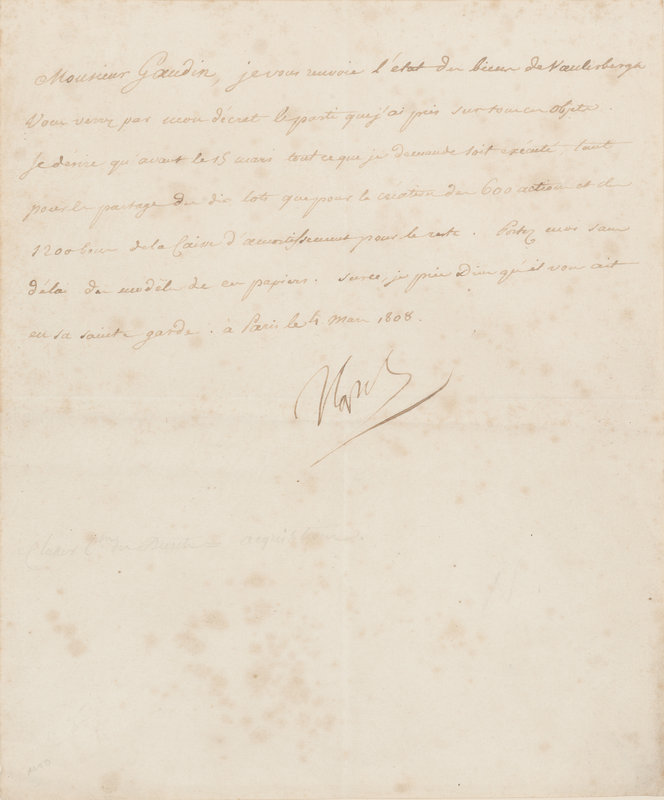 Monsieur Gaudin, je vous renvoie l'état des biens de Vanlerberghe
Vous verrez par mon décret le parti que j'ai pris sur tous ces objets.
Je désire qu'avant le 15 mars tout ce que je demande soit exécuté, tant
pour le partage des dix lots que pour la création des 600 actions et des
1200 bons de la Caisse d'amortissement pour le reste. Portez moi sans
délai des modèles de ces papiers. Sur ce, je prie Dieu qu'il vous ait
en sa sainte garde. à Paris le 4 Mars 1808.
Nap